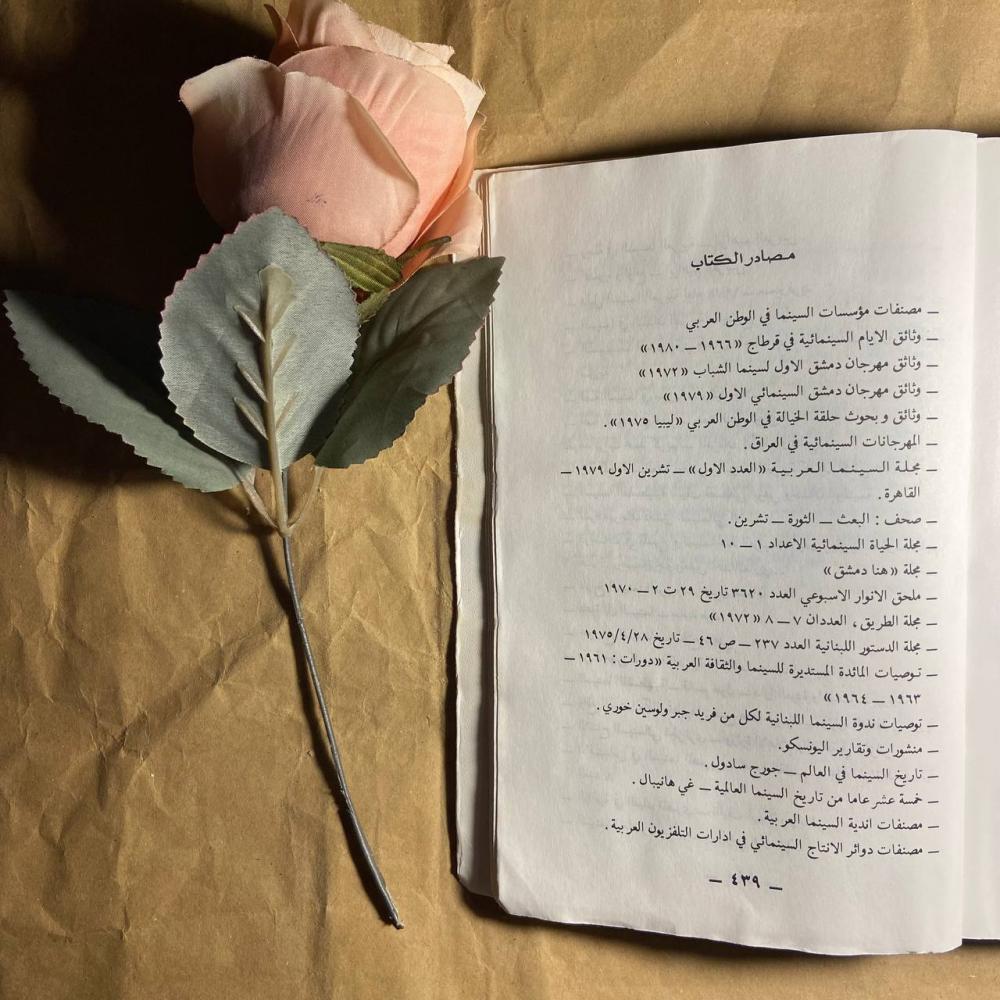 مصادر الكتاب
— مصنفات مؤسسات السينما في الوطن العربي
— وثائق الايام السينمائية في قرطاج «١٩٦٦ — ١٩٨٠»
— وثائق مهرجان دمشق الاول لسينما الشباب «١٩٧٢»
— وثائق مهرجان دمشق السينمائي الاول «١٩٧٩»
— وثائق و بحوث حلقة الخيالة في الوطن العربي «ليبيا ١٩٧٥».
— المهرجانات السينمائية في العراق.
— مجلة السينما العربية «العدد الاول» — تشرين الاول ١٩٧٩ —
القاهرة.
— صحف : البعث — الثورة — تشرين.
— مجلة الحياة السينمائية الاعداد ١ — ١٠
— مجلة «هنا دمشق»
— ملحق الانوار الاسبوعي العدد ٣٦٢٠ تاريخ ٢٩ ت ٢ — ١٩٧٠
— مجلة الطريق، العددان ٧ — ٨ «١٩٧٢»
— مجلة الدستور اللبنانية العدد ٢٣٧ — ص ٤٦ — تاريخ ١٩٧٥/٤/٢٨
— توصيات المائدة المستديرة للسينما والثقافة العربية «دورات : ١٩٦١ —
١٩٦٣ — ١٩٦٤»
— توصيات ندوة السينما اللبنانية لكل من فريد جبر ولوسين خوري.
— منشورات وتقارير اليونسكو.
— تاريخ السينما في العالم — جورج سادول.
— خمسة عشر عاما من تاريخ السينما العالمية — غي هانيبال.
— مصنفات اندية السينما العربية.
— مصنفات دوائر الانتاج السينمائي في ادارات التلفزيون العربية.
— ٤٣٩ —